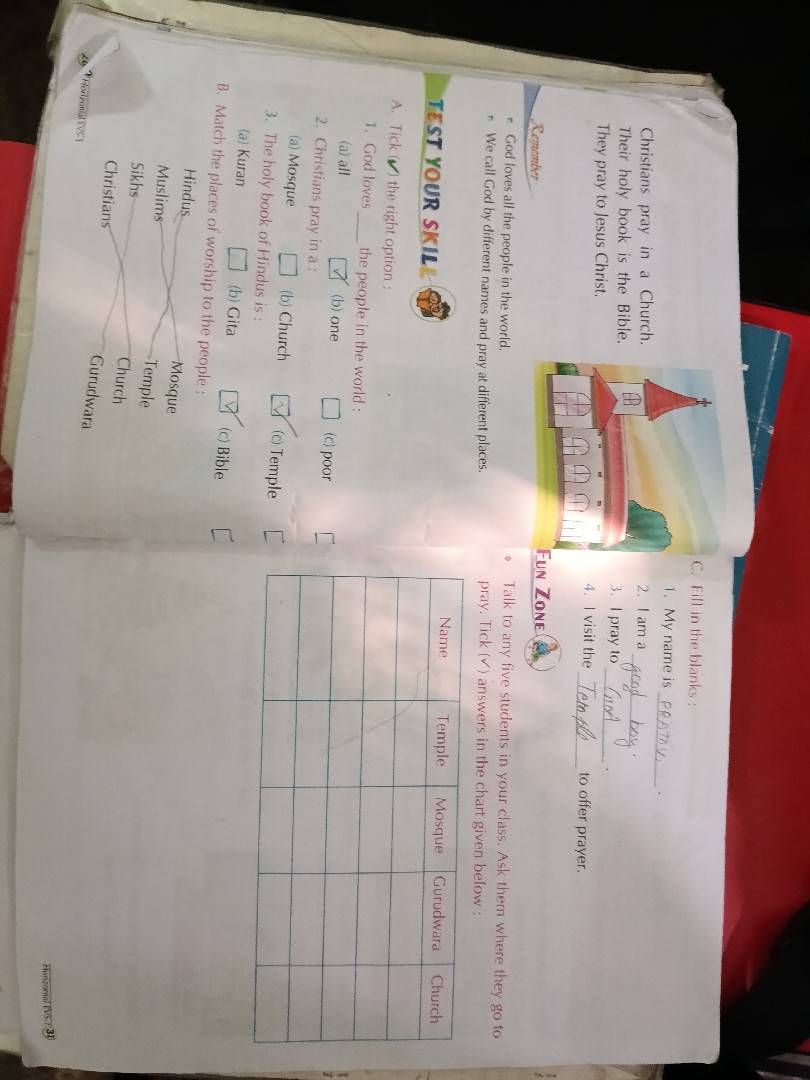 Christians pray in a Church.
Their holy book is the Bible.
They pray to Jesus Christ.
Remember
God loves all the people in the world.
We call God by different names and pray at different places.
TEST YOUR SKILL
A. Tick (✔) the right option :
1. God loves ____ the people in the world :
(a) all ☑ (b) one ☐ (c) poor ☐
2. Christians pray in a :
(a) Mosque ☐ (b) Church ☑ (c) Temple ☐
3. The holy book of Hindus is :
(a) Kuran ☐ (b) Gita ☑ (c) Bible ☐
B. Match the places of worship to the people :
Hindus Mosque
Muslims Temple
Sikhs Church
Christians Gurudwara
Horizontal EVS-1
C. Fill in the blanks :
1. My name is
2. I am a good boy.
3. I pray to God.
4. I visit the Temple to offer prayer.
FUN ZONE
Talk to any five students in your class. Ask them where they go to
pray. Tick (✓) answers in the chart given below :
Name Temple Mosque Gurudwara Church
Horizontal EVS-1 31